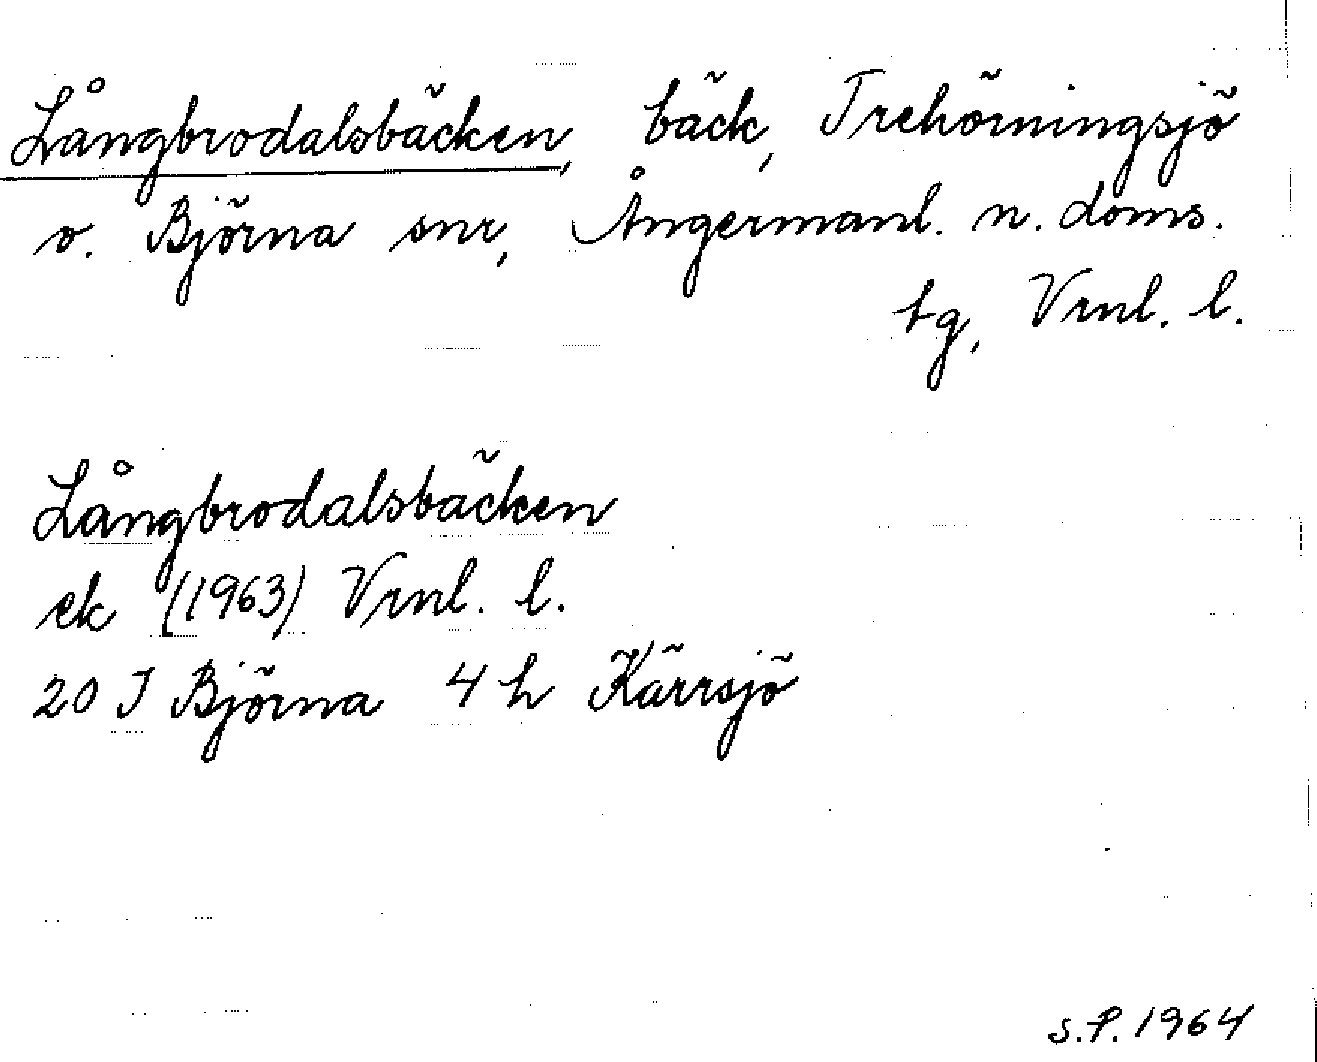 Långbrodalsbäcken, bäck, Trehörningsjö
o. Björna snr, Ångermanl. n. doms.
tg, Vrnl. l.
Långbrodalsbäcken
ek (1963) Vrnl. l.
20 J Björna 4 h Kärrsjö
S.P. 1964